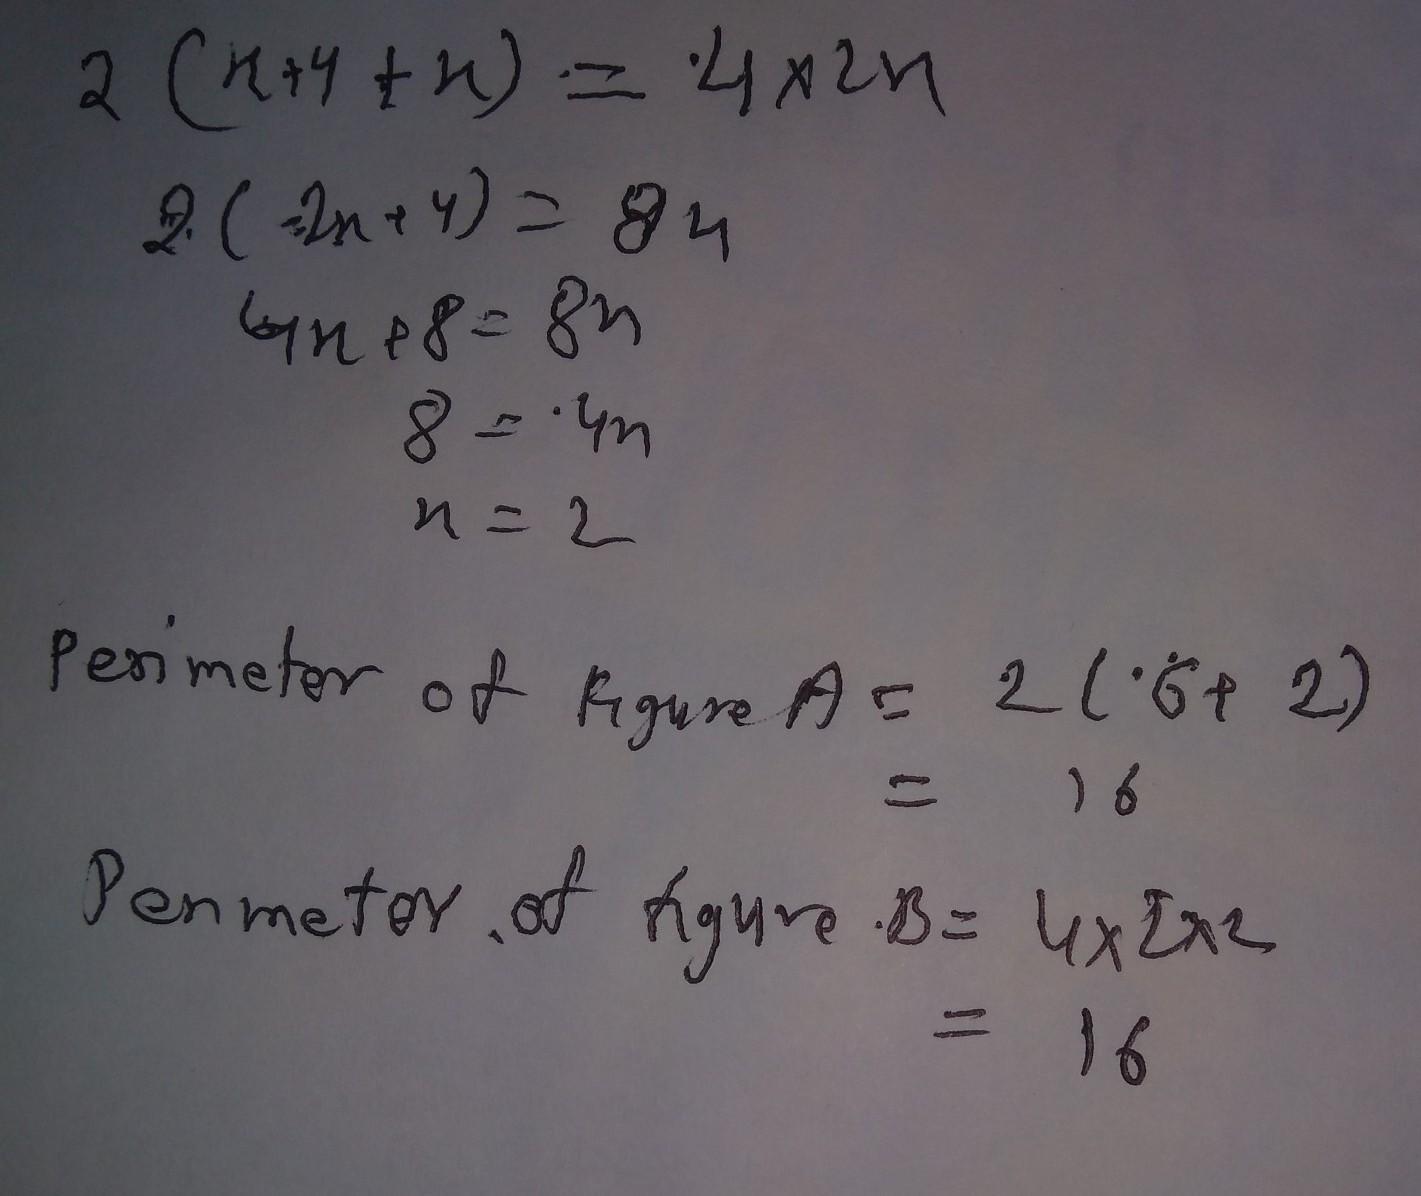 2 (x+4+x) = 4×2x
2(2x+4) = 8x
4x+8 = 8x
8 = 4x
x = 2
Perimeter of figure A = 2(6+2)
= 16
Perimeter of figure B = 4×2×2
= 16